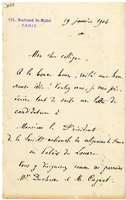 105, Boulevard St-Michel
PARIS
19 janvier 1904
Mon cher collègue,
A la bonne heure, voilà une bonne
idée ! Voulez-vous, je vous prie,
de suite une lettre de
candidature à
Monsieur le Président
de la Société nationale des antiquaires de France
au Palais du Louvre
Vous y désignerez comme vos parrains
Mr. Duchesne et M. Cagnat